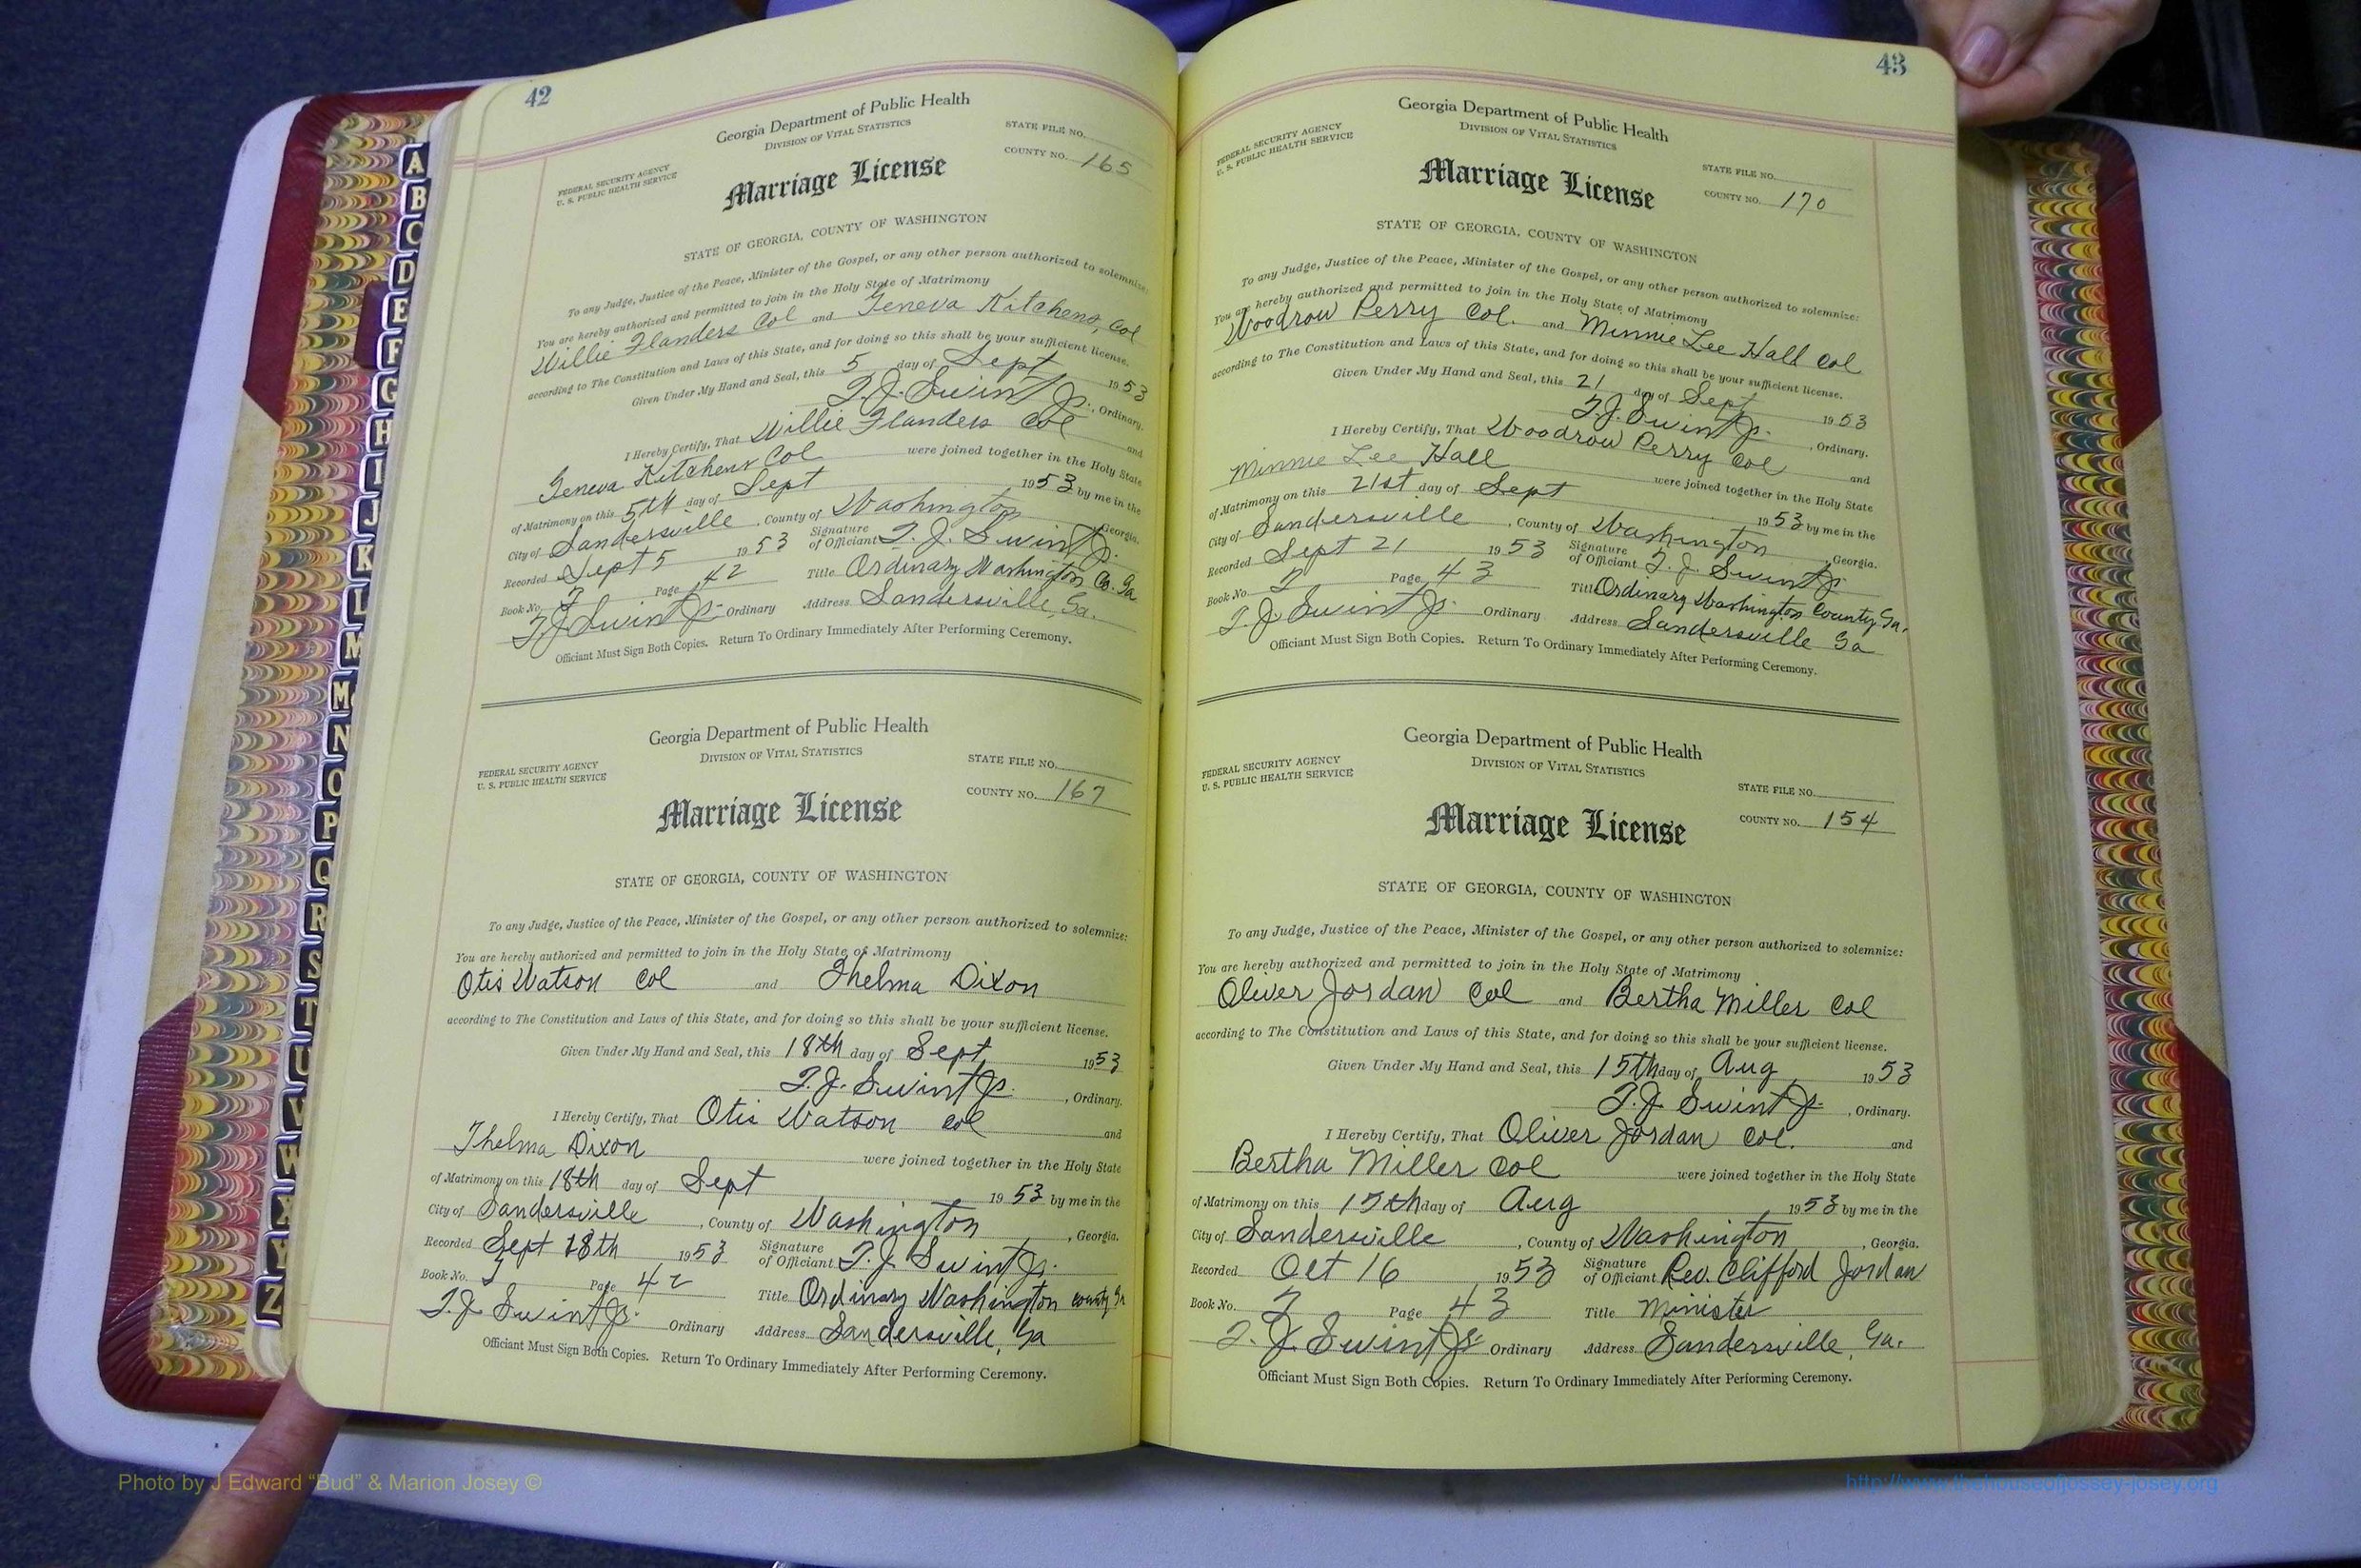 42
Georgia Department of Public Health
DIVISION OF VITAL STATISTICS
FEDERAL SECURITY AGENCY
U. S. PUBLIC HEALTH SERVICE
STATE FILE NO.
COUNTY NO. 165
Marriage License
STATE OF GEORGIA, COUNTY OF WASHINGTON
To any Judge, Justice of the Peace, Minister of the Gospel, or any other person authorized to solemnize:
You are hereby authorized and permitted to join in the Holy State of Matrimony
Willie Flanders Col and Geneva Kitchens, Col
according to The Constitution and Laws of this State, and for doing so this shall be your sufficient license.
Given Under My Hand and Seal, this 5 day of Sept 1953
T. J. Swint Jr., Ordinary.
I Hereby Certify, That Willie Flanders Col and
Geneva Kitchens Col were joined together in the Holy State
of Matrimony on this 5th day of Sept 1953 by me in the
City of Sandersville, County of Washington, Georgia.
Recorded Sept 5 1953 Signature of Officiant T. J. Swint Jr.
Book No. T Page 42 Title Ordinary Washington Co. Ga
T. J. Swint Jr. Ordinary Address Sandersville, Ga.
Officiant Must Sign Both Copies. Return To Ordinary Immediately After Performing Ceremony.
Georgia Department of Public Health
DIVISION OF VITAL STATISTICS
FEDERAL SECURITY AGENCY
U. S. PUBLIC HEALTH SERVICE
STATE FILE NO.
COUNTY NO. 167
Marriage License
STATE OF GEORGIA, COUNTY OF WASHINGTON
To any Judge, Justice of the Peace, Minister of the Gospel, or any other person authorized to solemnize:
You are hereby authorized and permitted to join in the Holy State of Matrimony
Otis Watson Col and Thelma Dixon
according to The Constitution and Laws of this State, and for doing so this shall be your sufficient license.
Given Under My Hand and Seal, this 18th day of Sept 1953
T. J. Swint Jr., Ordinary.
I Hereby Certify, That Otis Watson col and
Thelma Dixon were joined together in the Holy State
of Matrimony on this 18th day of Sept 1953 by me in the
City of Sandersville, County of Washington, Georgia.
Recorded Sept 18th 1953 Signature of Officiant T. J. Swint Jr.
Book No. T Page 42 Title Ordinary Washington County Ga
T. J. Swint Jr. Ordinary Address Sandersville, Ga
Officiant Must Sign Both Copies. Return To Ordinary Immediately After Performing Ceremony.
43
Georgia Department of Public Health
DIVISION OF VITAL STATISTICS
FEDERAL SECURITY AGENCY
U. S. PUBLIC HEALTH SERVICE
STATE FILE NO.
COUNTY NO. 170
Marriage License
STATE OF GEORGIA, COUNTY OF WASHINGTON
To any Judge, Justice of the Peace, Minister of the Gospel, or any other person authorized to solemnize:
You are hereby authorized and permitted to join in the Holy State of Matrimony
Woodrow Perry Col. and Minnie Lee Hall Col
according to The Constitution and Laws of this State, and for doing so this shall be your sufficient license.
Given Under My Hand and Seal, this 21 day of Sept 1953
T. J. Swint Jr., Ordinary.
I Hereby Certify, That Woodrow Perry Col and
Minnie Lee Hall were joined together in the Holy State
of Matrimony on this 21st day of Sept 1953 by me in the
City of Sandersville, County of Washington, Georgia.
Recorded Sept 21 1953 Signature of Officiant T. J. Swint Jr.
Book No. T Page 43 Title Ordinary Washington County, Ga.
T. J. Swint Jr. Ordinary Address Sandersville Ga
Officiant Must Sign Both Copies. Return To Ordinary Immediately After Performing Ceremony.
Georgia Department of Public Health
DIVISION OF VITAL STATISTICS
FEDERAL SECURITY AGENCY
U. S. PUBLIC HEALTH SERVICE
STATE FILE NO.
COUNTY NO. 154
Marriage License
STATE OF GEORGIA, COUNTY OF WASHINGTON
To any Judge, Justice of the Peace, Minister of the Gospel, or any other person authorized to solemnize:
You are hereby authorized and permitted to join in the Holy State of Matrimony
Oliver Jordan Col and Bertha Miller Col
according to The Constitution and Laws of this State, and for doing so this shall be your sufficient license.
Given Under My Hand and Seal, this 15th day of Aug 1953
T. J. Swint Jr., Ordinary.
I Hereby Certify, That Oliver Jordan Col. and
Bertha Miller Col were joined together in the Holy State
of Matrimony on this 15th day of Aug 1953 by me in the
City of Sandersville, County of Washington, Georgia.
Recorded Oct 16 1953 Signature of Officiant Rev. Clifford Jordan
Book No. T Page 43 Title Minister
T. J. Swint Jr. Ordinary Address Sandersville, Ga.
Officiant Must Sign Both Copies. Return To Ordinary Immediately After Performing Ceremony.
A
B
C
D
E
F
G
H
I
J
K
L
M
Mc
N
O
P
Q
R
S
T
U
V
W
X
Y
Z
Photo by J Edward “Bud” & Marion Josey ©
http://www.thehouseofjossey-josey.org